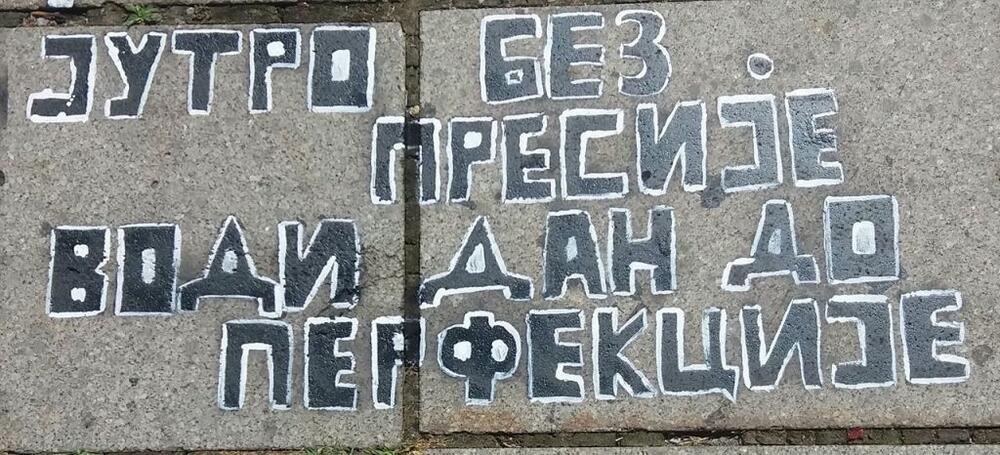 ЈУТРО БЕЗ
ПРЕСИЈЕ
ВОДИ ДАН ДО
ПЕРФЕКЦИЈЕ